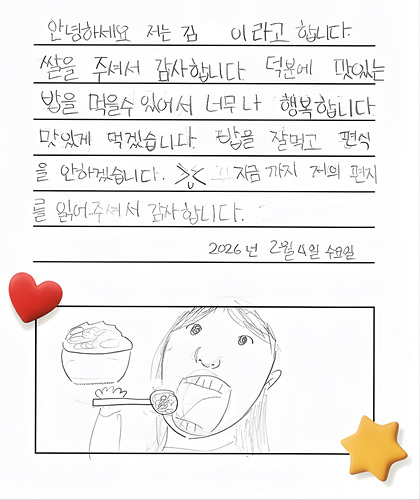 안녕하세요 저는 김 이라고 합니다.
쌀을 주셔서 감사합니다. 덕분에 맛있는
밥을 먹을수 있어서 너무나 행복합니다.
맛있게 먹겠습니다. 밥을 잘먹고 편식
을 안하겠습니다. 지금 까지 저의 편지
를 읽어주셔서 감사합니다.
2026년 2월 4일 수요일